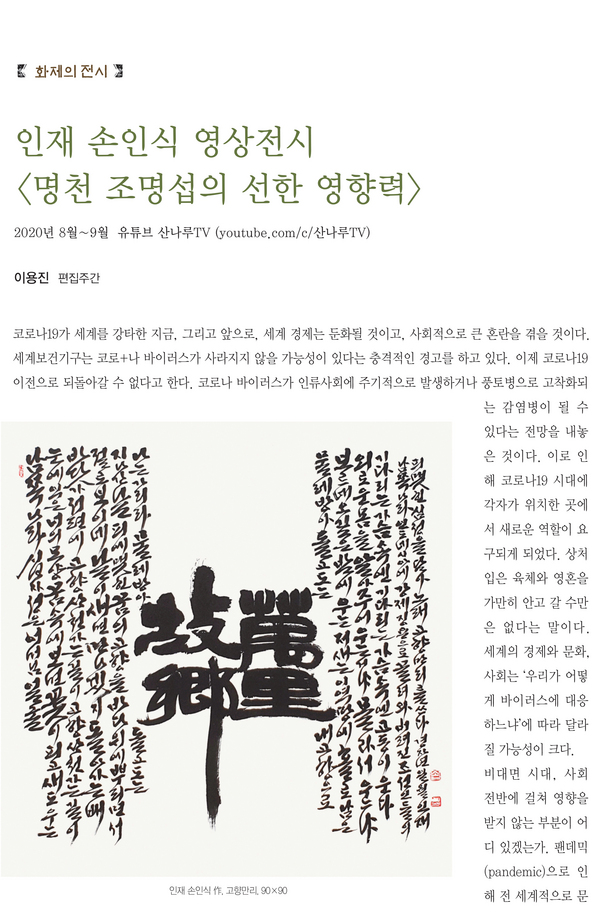 화제의 전시
인재 손인식 영상전시
〈명천 조명섭의 선한 영향력〉
2020년 8월~9월 유튜브 산나루TV (youtube.com/c/산나루TV)
이용진 편집주간
코로나19가 세계를 강타한 지금, 그리고 앞으로, 세계 경제는 둔화될 것이고, 사회적으로 큰 혼란을 겪을 것이다.
세계보건기구는 코로+나 바이러스가 사라지지 않을 가능성이 있다는 충격적인 경고를 하고 있다. 이제 코로나19
이전으로 되돌아갈 수 없다고 한다. 코로나 바이러스가 인류사회에 주기적으로 발생하거나 풍토병으로 고착화되
는 감염병이 될 수
있다는 전망을 내놓
은 것이다. 이로 인
해 코로나19 시대에
각자가 위치한 곳에
서 새로운 역할이 요
구되게 되었다. 상처
입은 육체와 영혼을
가만히 안고 갈 수만
은 없다는 말이다.
세계의 경제와 문화,
사회는 ‘우리가 어떻
게 바이러스에 대응
하느냐’에 따라 달라
질 가능성이 크다.
비대면 시대, 사회
전반에 걸쳐 영향을
받지 않는 부분이 어
디 있겠는가. 팬데믹
(pandemic)으로 인
해 전 세계적으로 문
남쪽나라 십자성은 어머님 얼굴
눈에 익은 너의 모습 꿈속에 보면 꽃이 피고 새도 우는
바닷가 저편에 고향산천 가는 길이 고향산천 가는 길이
절로 보이네 날이 새면 만나겠지 돌아가는 배
萬里
故鄕
인재 손인식 作, 고향만리, 90×90